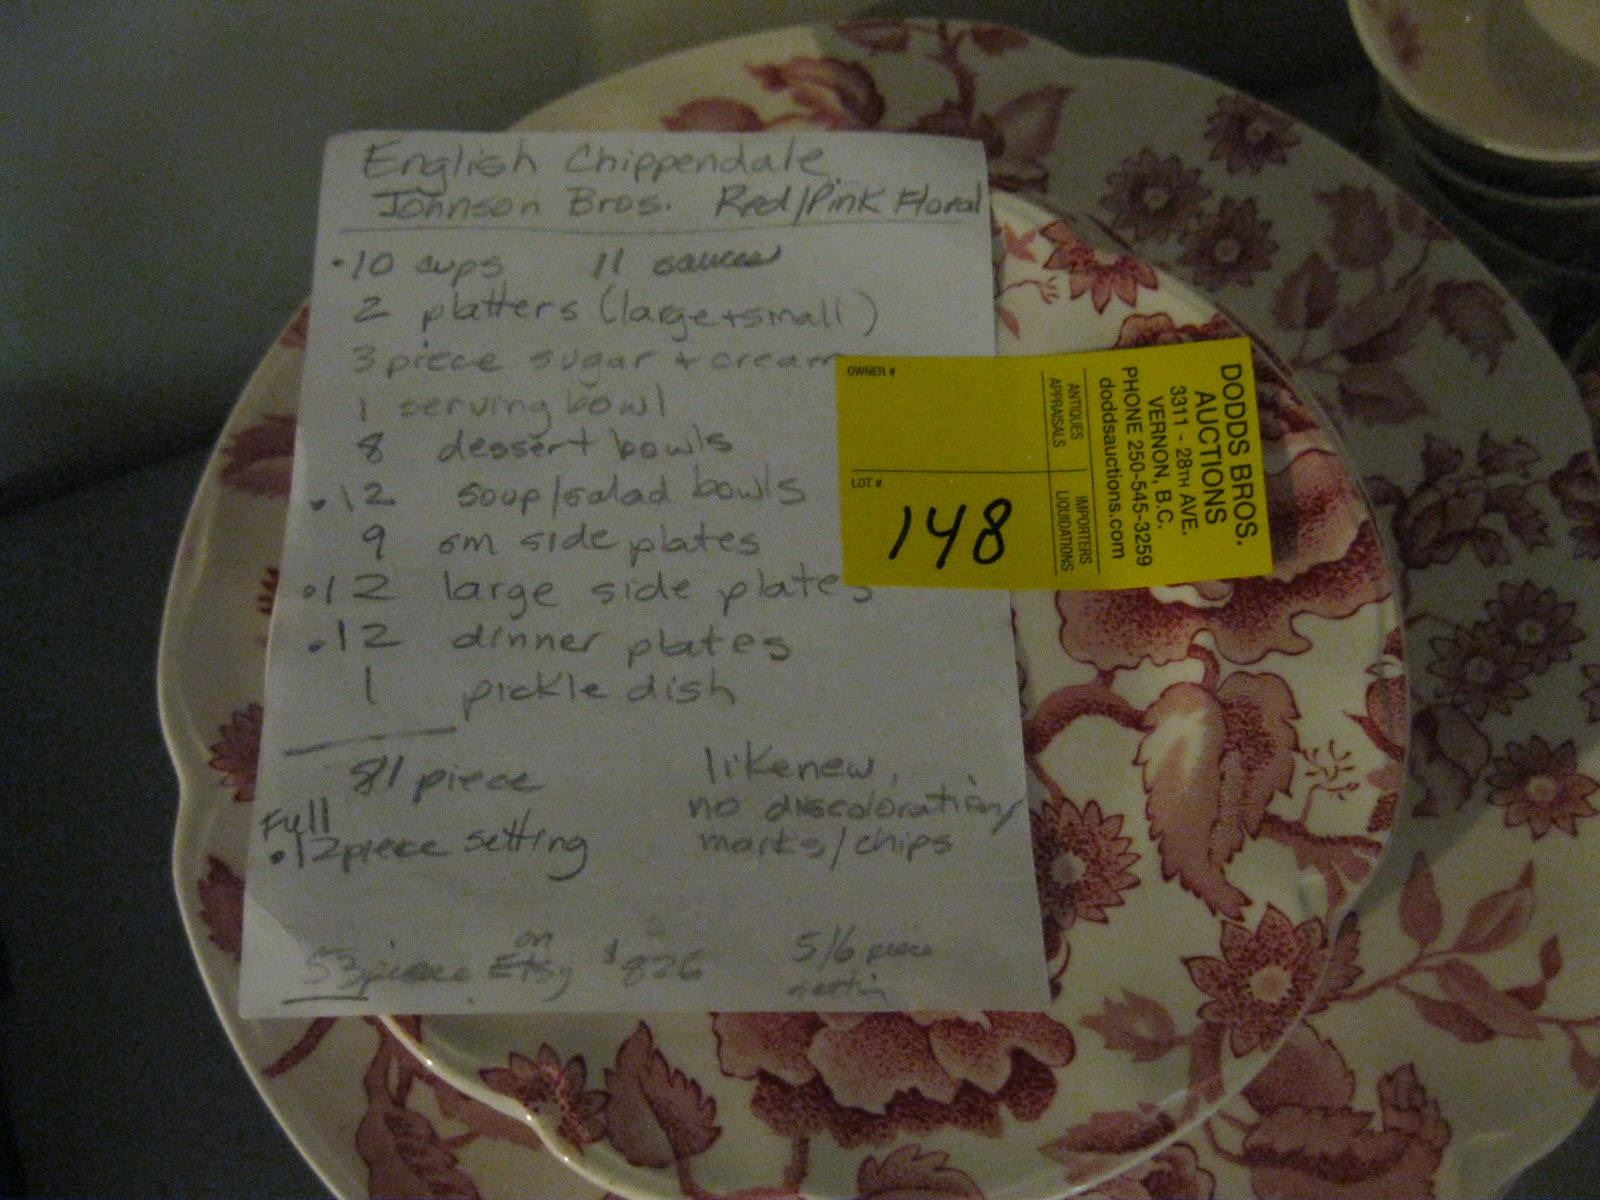 English Chippendale
Johnson Bros. Red/Pink Floral
•10 cups 11 saucer
2 platters (large + small)
3 piece sugar + cream
1 serving bowl
8 dessert bowls
•12 soup/salad bowls
9 sm side plates
•12 large side plates
•12 dinner plates
1 pickle dish
81 piece
Full
•12 piece setting
like new,
no discoloration/
marks/chips
53 piece on Etsy $826
5/6 piece
settin
OWNER #
LOT #
148
ANTIQUES
APPRAISALS
IMPORTERS
LIQUIDATIONS
DODDS BROS.
AUCTIONS
3311 - 28TH AVE.
VERNON, B.C.
PHONE 250-545-3259
doddsauctions.com